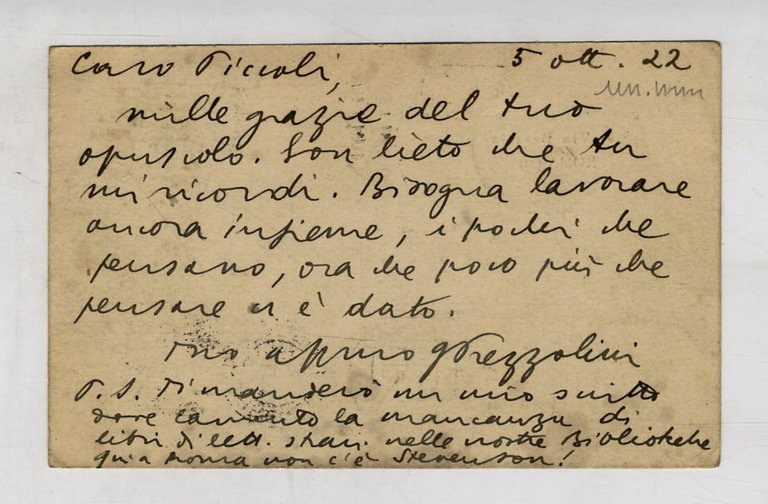 Caro Piccoli, 5 ott. 22
mille grazie del tuo
opuscolo. Son lieto che tu
mi ricordi. Bisogna lavorare
ancora insieme, i pochi che
pensano, ora che poco più che
pensare ci è dato.
tuo affmo GPrezzolini
P.S. Ti manderò un mio scritto
dove lamento la mancanza di
libri di lett. stran. nelle nostre Biblioteche
qui a Roma non c'è Stevenson!